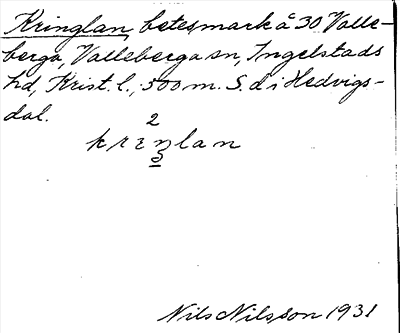 Kringlan, betesmark å 30 Valle-
berga, Valleberga sn, Ingelstads
hd, Krist. l., 500 m. S. d i Hedvigs-
dal.
2
krɪŋlan
Nils Nilsson 1931